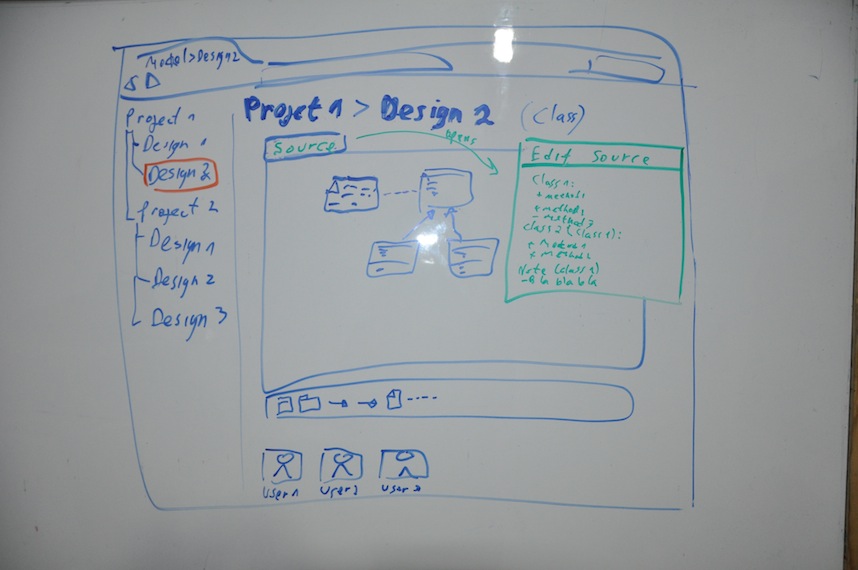 Model>Design2
Project 1
Design 1
Design 2
Project 2
Design 1
Design 2
Design 3
Projet 1 > Design 2 (Class)
Source
opens
Edit Source
Class 1:
+ method1
+ method2
- method3
class2 (Class1):
+ Method1
+ Method2
Note (class1)
- Bla bla bla
User 1
User 2
User 3